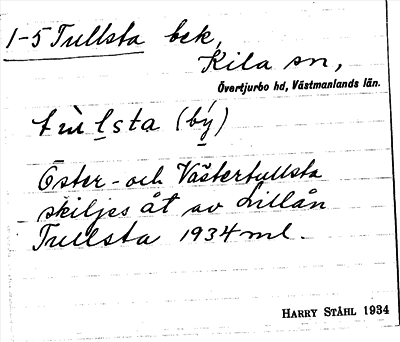 1-5 Tullsta bck,
Kila sn,
Övertjurbo hd, Västmanlands län.
tùlsta (bý)
Öster- och Västertullsta
skiljes åt av Lillån
Tullsta 1934 ml.
HARRY STÅHL 1934